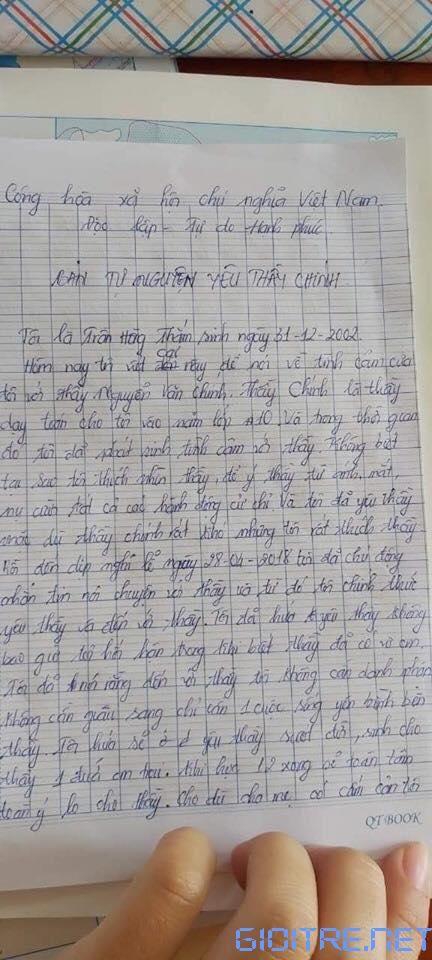 Cộng hòa xã hội chủ nghĩa Việt Nam.
Độc lập - Tự do Hạnh phúc.
BẢN TỰ NGUYỆN YÊU THẦY CHÍNH
Tôi là Trần Hồng Thắm, sinh ngày 31-12-2002.
Hôm nay tôi viết cái này để nói về tình cảm của
tôi với thầy Nguyễn Văn Chính. Thầy Chính là thầy
dạy toán cho tôi vào năm lớp A10. Và trong thời gian
đó tôi đã phát sinh tình cảm với thầy. Không biết
tại sao tôi thích nhìn thầy, để ý thầy từ ánh mắt,
nụ cười tất cả các hành động cử chỉ. Và tôi đã yêu thầy
mặc dù thầy chính rất khó nhưng tôi rất thích thầy.
đến dịp nghỉ lễ ngày 28-04-2018 tôi đã chủ động
nhắn tin nói chuyện với thầy và từ đó tôi chính thức
yêu thầy và đến với thầy. Tôi đã hứa yêu thầy không
bao giờ hối hận trong khi biết thầy đã có vợ con.
Tôi đã nói rằng đến với thầy tôi không cần danh phận
không cần giàu sang chỉ cần 1 cuộc sống yên bình bên
thầy. Tôi hứa sẽ yêu thầy suốt đời, sinh cho
thầy 1 đứa em trai. Khi học 12 xong sẽ toàn tâm
toàn ý lo cho thầy. Cho dù cha mẹ có cấm cản tôi
QT BOOK
GIOITRE.NET